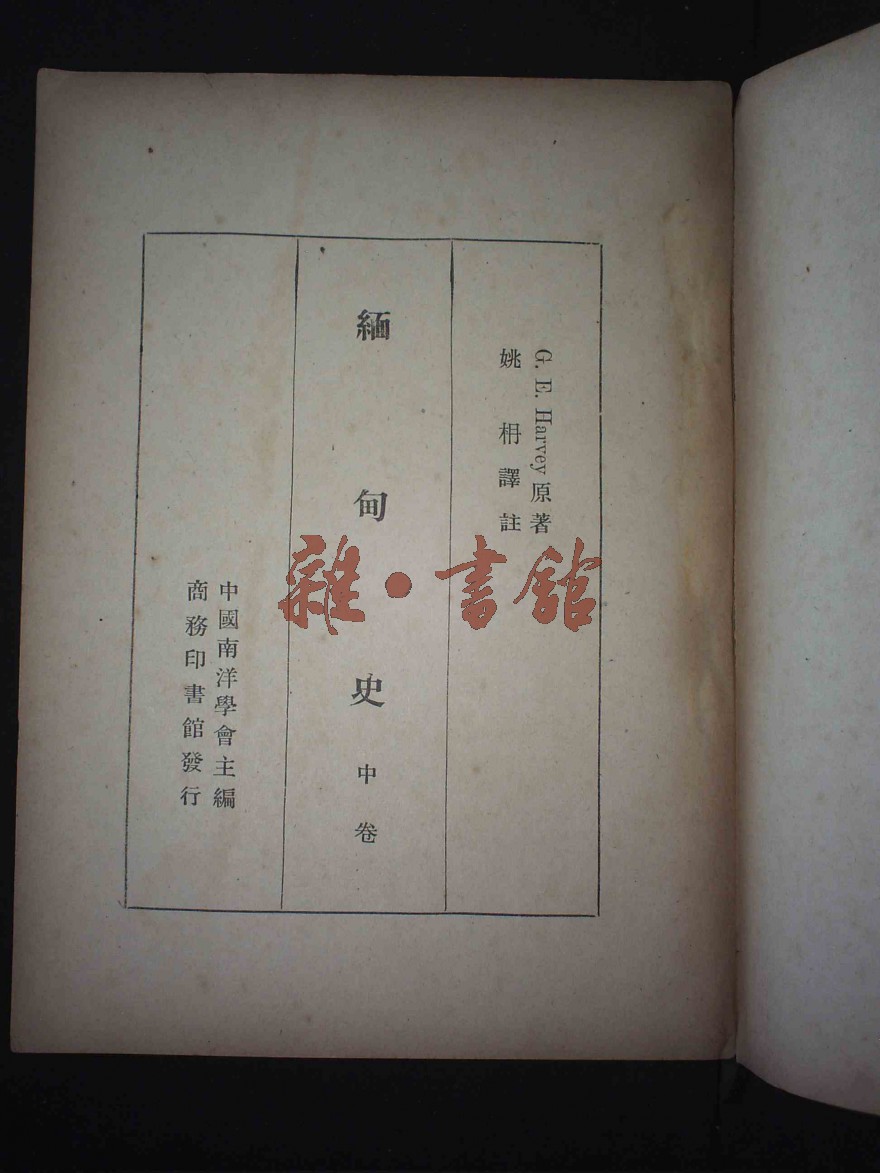 G. E. Harvey原著
姚枬譯註
緬甸史 中卷
中國南洋學會主編
商務印書館發行
雜·書館